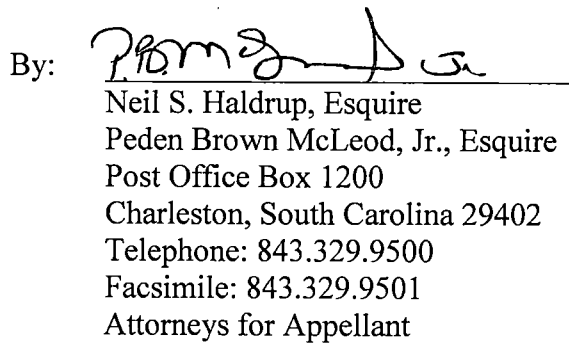 By: P.B. M Jr
Neil S. Haldrup, Esquire
Peden Brown McLeod, Jr., Esquire
Post Office Box 1200
Charleston, South Carolina 29402
Telephone: 843.329.9500
Facsimile: 843.329.9501
Attorneys for Appellant